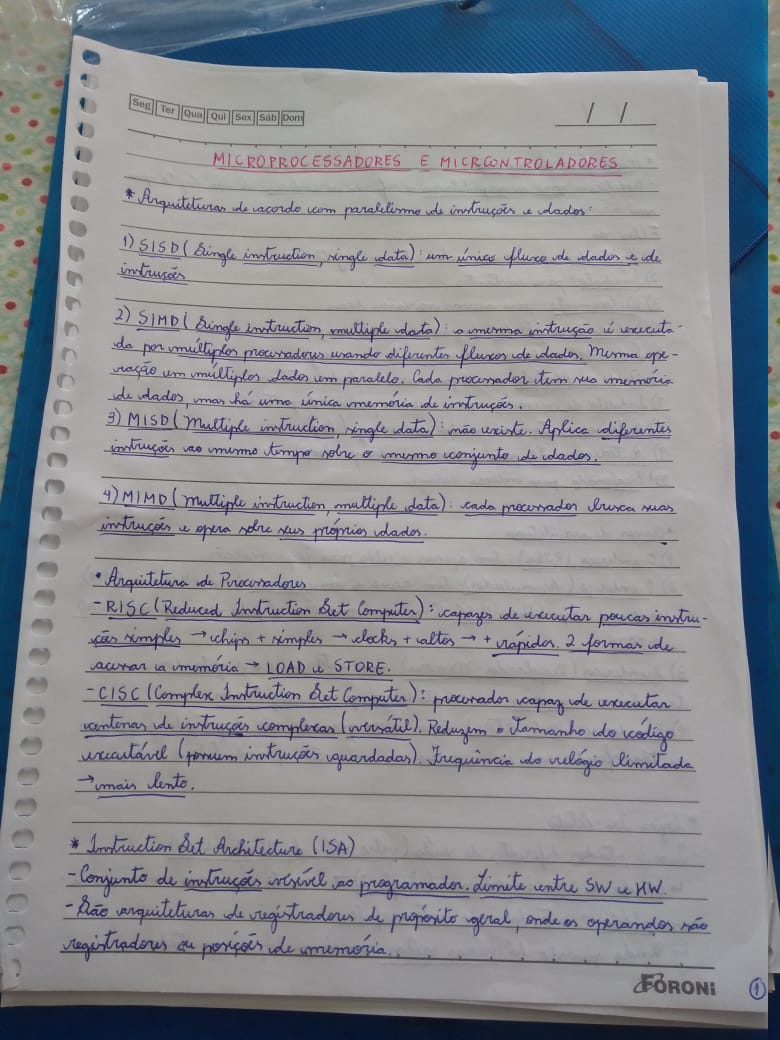 Seg Ter Qua Qui Sex Sáb Dom
/ /
MICROPROCESSADORES E MICRCONTROLADORES
* Arquiteturas de acordo com paralelismo de instruções e dados:
1) SISD (Single instruction, single data): um único fluxo de dados e de
instruções
2) SIMD (Single instruction, multiple data): a mesma instrução é executa-
da por múltiplos processadores usando diferentes fluxos de dados. Mesma ope-
ração em múltiplos dados em paralelo. Cada processador tem sua memória
de dados, mas há uma única memória de instruções.
3) MISD (Multiple instruction, single data): não existe. Aplica diferentes
instruções ao mesmo tempo sôbre o mesmo conjunto de dados.
4) MIMD (Multiple instruction, multiple data): cada processador busca suas
instruções e opera sobre seus próprios dados.
• Arquitetura de Processadores
- RISC (Reduced Instruction Set Computer): capazes de executar poucas instru-
ções simples → chips + simples → clocks + altos → + rápidos. 2 formas de
acessar a memória → LOAD e STORE.
- CISC (Complex Instruction Set Computer): processador capaz de executar
centenas de instruções complexas (versátil). Reduzem o Tamanho do código
executável (possuem instruções guardadas). Frequência do relógio limitada
→ mais lento.
* Instruction Set Architecture (ISA)
- Conjunto de instruções visível ao programador. Limite entre SW e HW.
- São arquiteturas de registradores de propósito geral, onde os operandos são
registradores ou posições de memória.
FORONI
1